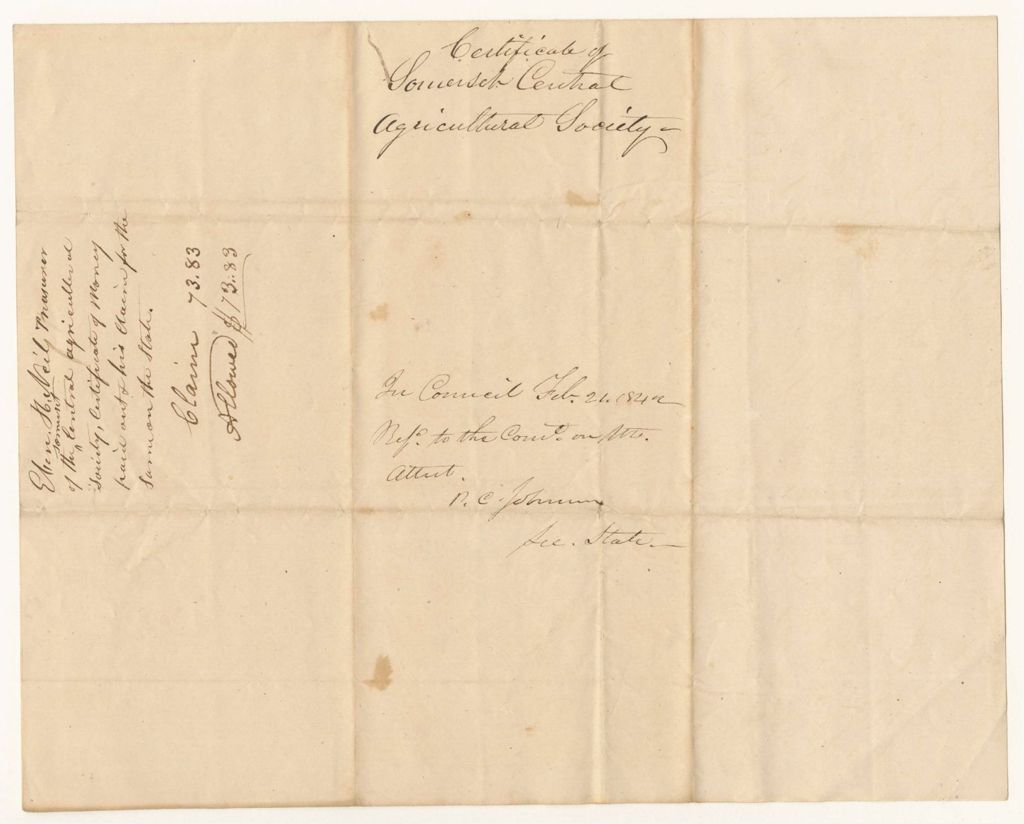 Certificate of
Somerset Central
Agricultural Society
Eben. H. Neil, Treasurer
Somerset
of the Central agricultural
Society, Certificate of Money
paid out & his Claim for the
same on the State.
Claim 73.83
Allowed $73.83
In Council Feb. 21. 1842
Refd. to the Come. on
Attest.
P. C. Johnson
Sec. State